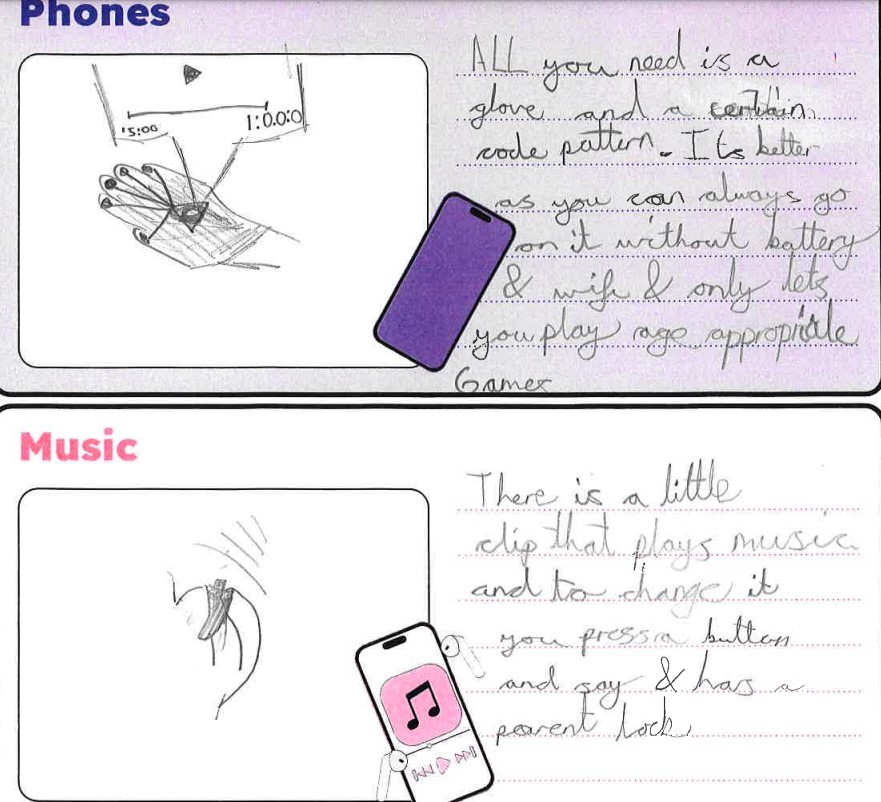 Phones
'5:00
1:0.0:0
ALL you need is a
glove and a certain
code pattern. Its better
as you can always go
on it without battery
& wifi & only lets
you play age appropriate
Games
Music
There is a little
clip that plays music
and to change it
you press a button
and say & has a
parent lock